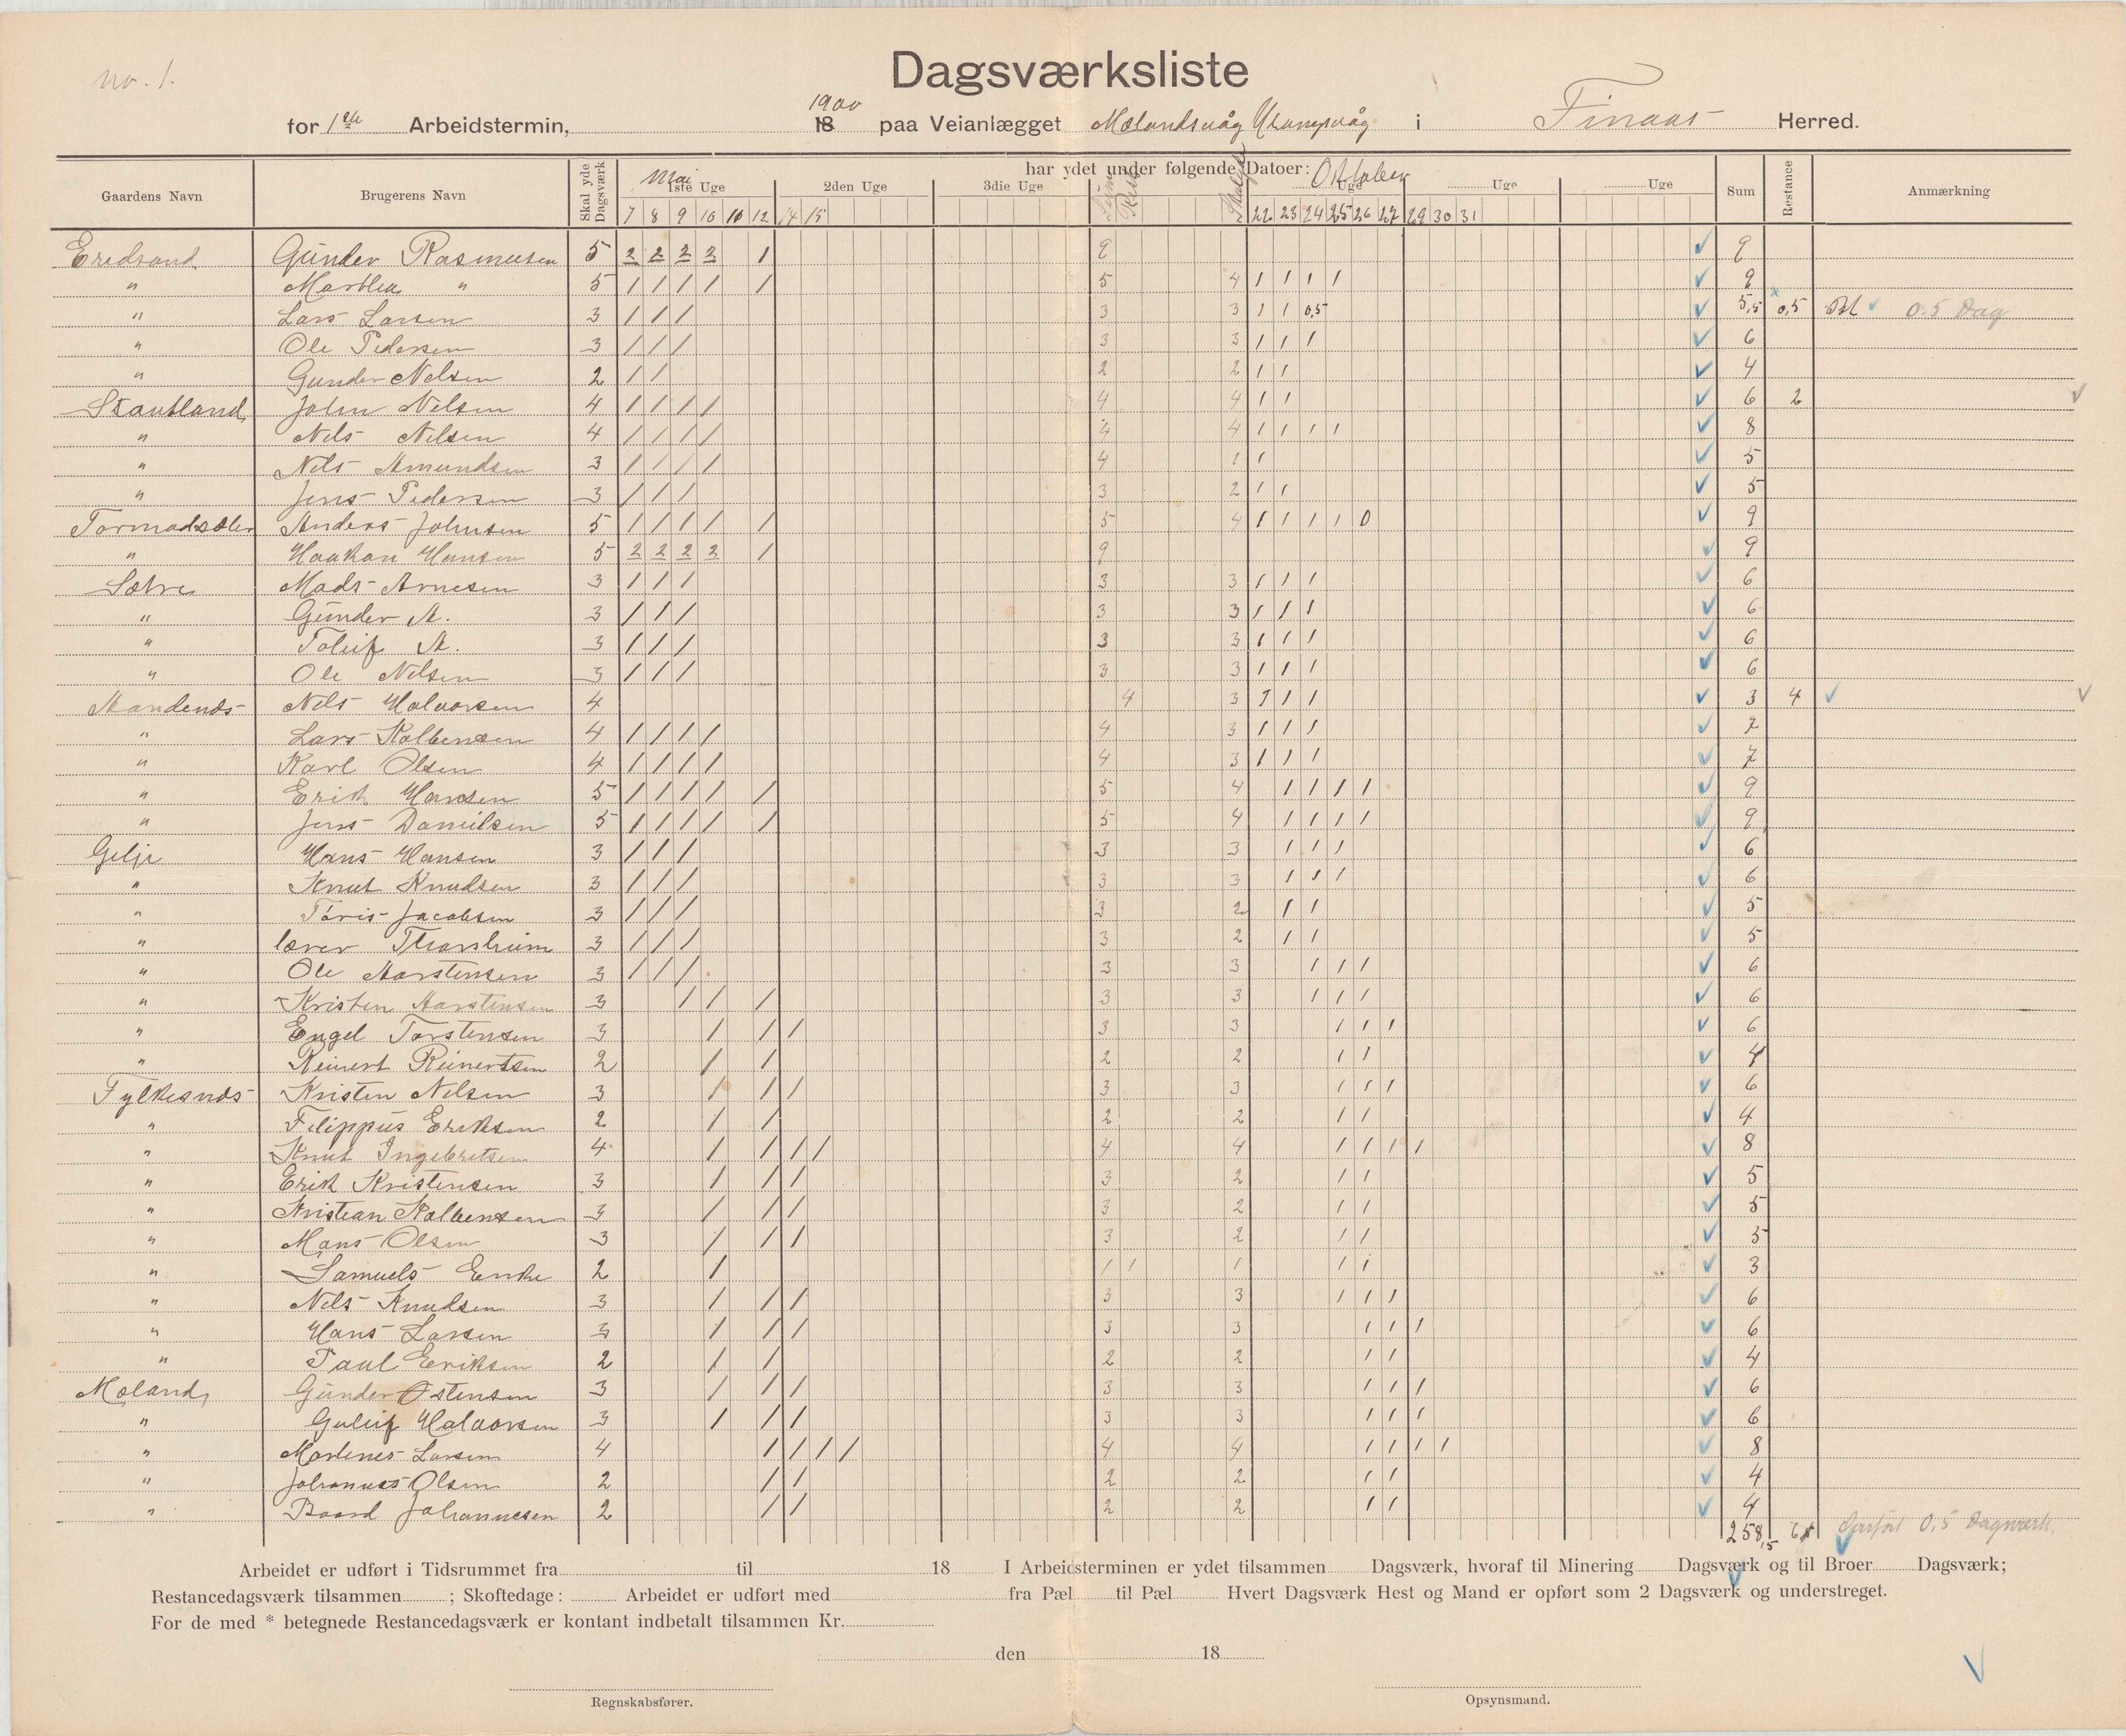 no. 1.
Dagsværksliste
1900
for 1ste Arbeidstermin, 18 paa Veianlægget Mælandsvåg Urangsvåg i Finaas Herred.
Gaardens Navn Brugerens Navn Skal yde Dagsværk har ydet under følgende Datoer: Sum Restance Anmærkning
Mai 1ste Uge 2den Uge 3die Uge Sum Rest Skal yde Oktober Uge Uge Uge
7 8 9 10 11 12 14 15 22 23 24 25 26 27 29 30 31
Eredsand Gunder Rasmussen 5 2 2 2 2 1 9 9
" Martha " 5 1 1 1 1 1 5 4 1 1 1 1 9
" Lars Larsen 3 1 1 1 3 3 1 1 0,5 5,5 0,5 Bet 0.5 Dag
" Ole Pedersen 3 1 1 1 3 3 1 1 1 6
" Gunder Nelsen 2 1 1 2 2 1 1 4
Skautland John Nelsen 4 1 1 1 1 4 4 1 1 6 2
" Nels Nelsen 4 1 1 1 1 4 4 1 1 1 1 8
" Nels Amundsen 3 1 1 1 1 4 1 1 5
" Jens Pedersen 3 1 1 1 3 2 1 1 5
Tormodsæter Anders Johnsen 5 1 1 1 1 1 5 4 1 1 1 1 0 9
" Haakon Hansen 5 2 2 2 2 1 9 9
Sætre Mads Arnesen 3 1 1 1 3 3 1 1 1 6
" Gunder A. 3 1 1 1 3 3 1 1 1 6
" Tolleif A. 3 1 1 1 3 3 1 1 1 6
" Ole Nelsen 3 1 1 1 3 3 1 1 1 6
Nels Halvorsen 4 4 3 1 1 1 3 4
" Lars Kolbensen 4 1 1 1 1 4 3 1 1 1 7
" Karl Olsen 4 1 1 1 1 4 3 1 1 1 7
" Erik Hansen 5 1 1 1 1 1 5 4 1 1 1 1 9
" Jens Danielsen 5 1 1 1 1 1 5 4 1 1 1 1 9
Gilje Hans Hansen 3 1 1 1 3 3 1 1 1 6
" Knut Knudsen 3 1 1 1 3 3 1 1 1 6
" Tøris Jacobsen 3 1 1 1 3 2 1 1 5
" lærer Thorsheim 3 1 1 1 3 2 1 1 5
" Ole Aarstensen 3 1 1 1 3 3 1 1 1 6
" Kristen Aarstensen 3 1 1 1 3 3 1 1 1 6
" Engel Torstensen 3 1 1 1 3 3 1 1 1 6
" Reinert Reinertsen 2 1 1 2 2 1 1 4
Fylkesnæs Kristen Nelsen 3 1 1 1 3 3 1 1 1 6
" Filippus Eriksen 2 1 1 2 2 1 1 4
" Knut Ingebretsen 4 1 1 1 1 4 4 1 1 1 1 8
" Erik Kristensen 3 1 1 1 3 2 1 1 5
" Kristian Kolbensen 3 1 1 1 3 2 1 1 5
" Mans Olsen 3 1 1 1 3 2 1 1 5
" Samuels Enke 2 1 1 1 1 1 1 3
" Nels Knudsen 3 1 1 1 3 3 1 1 1 6
" Hans Larsen 3 1 1 1 3 3 1 1 1 6
" Paul Eriksen 2 1 1 2 2 1 1 4
Mæland Gunder Østensen 3 1 1 1 3 3 1 1 1 6
" Guleif Halvorsen 3 1 1 1 3 3 1 1 1 6
" Martines Larsen 4 1 1 1 1 4 4 1 1 1 1 8
" Johannes Olsen 2 1 1 2 2 1 1 4
" Baard Johannesen 2 1 1 2 2 1 1 4
258,5 0,5 Dagsværk.
Arbeidet er udført i Tidsrummet fra til 18 I Arbeidsterminen er ydet tilsammen Dagsværk, hvoraf til Minering Dagsværk og til Broer Dagsværk;
Restancedagsværk tilsammen ; Skoftedage: Arbeidet er udført med fra Pæl til Pæl Hvert Dagsværk Hest og Mand er opført som 2 Dagsværk og understreget.
For de med * betegnede Restancedagsværk er kontant indbetalt tilsammen Kr.
den 18
Regnskabsfører. Opsynsmand.